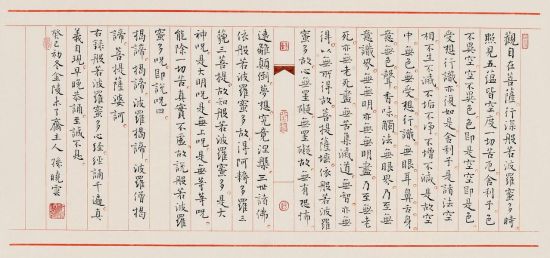 觀自在菩薩行深般若波羅蜜多時
照見五蘊皆空度一切苦厄舍利子色
不異空空不異色色即是空空即是色
受想行識亦復如是舍利子是諸法空
相不生不滅不垢不淨不增不減是故空
中無色無受想行識無眼耳鼻舌身
意無色聲香味觸法無眼界乃至無
意識界無無明亦無無明盡乃至無老
死亦無老死盡無苦集滅道無智亦無
得以無所得故菩提薩埵依般若波羅
蜜多故心無罣礙無罣礙故無有恐怖
遠離顛倒夢想究竟涅槃三世諸佛
依般若波羅蜜多故得阿耨多羅三
藐三菩提故知般若波羅蜜多是大
神咒是大明咒是無上咒是無等等咒
能除一切苦真實不虛故說般若波羅
蜜多咒即說咒曰
揭諦揭諦波羅揭諦波羅僧揭
諦菩提薩婆訶
右録般若波羅蜜多心經經誦千遍真
義自現早晚恭誦至誠不息
癸巳初冬金陵永了齋主人孫曉雲